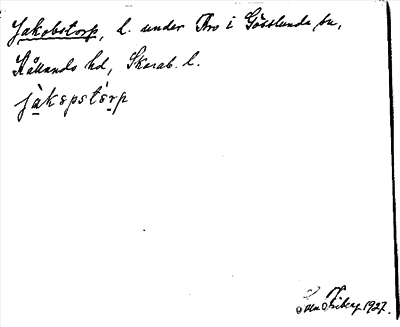 Jakobstorp, l. under Bro i Gösslunda sn,
Kållands hd, Skarab. l.
jàkəpstə́rp
Sven Friberg 1927.